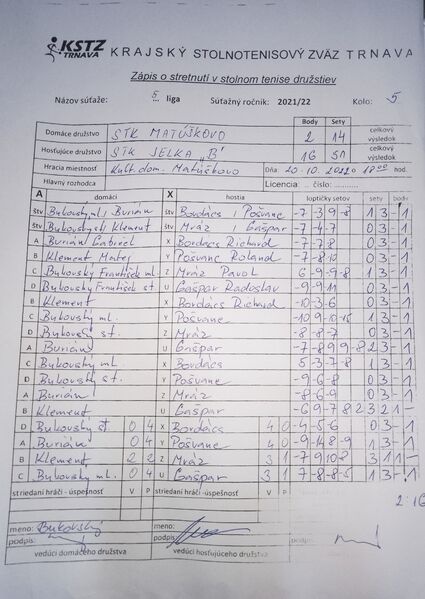 KSTZ TRNAVA KRAJSKÝ STOLNOTENISOVÝ ZVÄZ TRNAVA
Zápis o stretnutí v stolnom tenise družstiev
Názov súťaže: 5. liga Súťažný ročník: 2021/22 Kolo: 5
Body Sety
Domáce družstvo STK MATÚŠKOVO 2 14 celkový výsledok
Hosťujúce družstvo STK JELKA "B" 16 51 celkový výsledok
Hracia miestnosť Kult. dom. Matúškovo Dňa: 20.10.2021 o 18:00 hod.
Hlavný rozhodca Licencia číslo:
A domáci X hostia loptičky setov sety body
štv Bukovský ml / Burián štv Bordács / Pošvanc -7 -3 9 -8 1 3 - 1
štv Bukovský st / Klement štv Mráz / Gašpar -7 -4 -7 0 3 - 1
A Burián Gabriel X Bordács Richard -7 -7 -8 0 3 - 1
B Klement Matej Y Pošvanc Roland -7 -8 10 0 3 - 1
C Bukovský František ml. Z Mráz Pavol 6 -9 -9 -8 1 3 - 1
D Bukovský František st. U Gašpar Radoslav -9 -9 -11 0 3 - 1
B Klement X Bordács Richard -10 -3 -6 0 3 - 1
C Bukovský ml. Y Pošvanc 1 3 - 1
D Bukovský st. Z Mráz -8 -8 -7 0 3 - 1
A Burián U Gašpar -7 -8 9 9 -8 2 3 - 1
C Bukovský ml. X Bordács 5 -3 -7 -8 1 3 - 1
D Bukovský st. Y Pošvanc -9 -6 -8 0 3 - 1
A Burián Z Mráz -8 -6 -9 0 3 - 1
B Klement U Gašpar -6 9 -7 8 2 3 2 1 -
D Bukovský st. 0 4 X Bordács 4 0 -4 -5 -6 0 3 - 1
A Burián 0 4 Y Pošvanc 4 0 -9 -14 8 -9 1 3 - 1
B Klement 2 2 Z Mráz 3 1 -7 9 10 8 3 1 1 -
C Bukovský ml. 0 4 U Gašpar 3 1 7 -8 -8 -5 1 3 - 1
striedaní hráči - úspešnosť V P striedaní hráči - úspešnosť V P
2:16
meno: Bukovský meno:
podpis: podpis: podpis
vedúci domáceho družstva vedúci hosťujúceho družstva